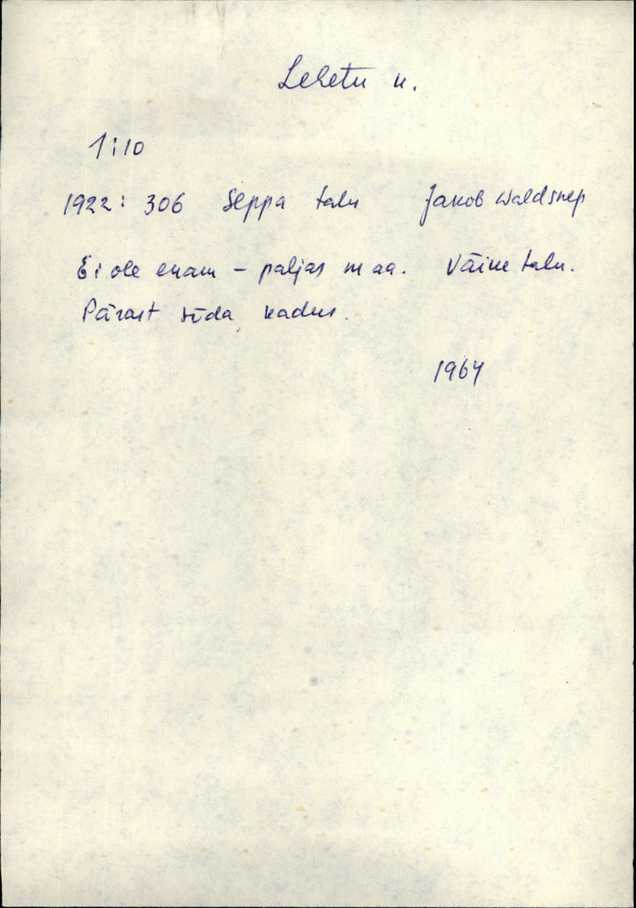 Lehetu k.
1:10
1922: 306 Seppa talu Jakob Waldsnep
Ei ole enam - paljas maa. Väike talu.
Pärast sõda kadus.
1964